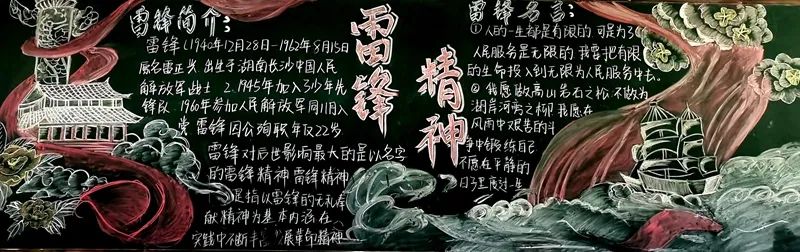 雷锋简介:
雷锋(1940年12月28日-1962年8月15日
原名雷正兴.出生于湖南长沙中国人民
解放军战士 2.1945年加入了少年先
锋队.1960年参加人民解放军同11月入
党 雷锋因公殉职年仅22岁
雷锋对后世影响最大的是以名字
的雷锋精神雷锋精神
是指以雷锋的无私奉
献精神为基本内涵在
实践中不断丰 发展革命精神
雷锋
精神
雷锋名言:
①人的一生都是有限的可是为
人民服务是无限的我要把有限
的生命投入到无限为人民服务中去。
②我愿做高山岩石之松不做为
湖岸河旁之柳我愿在
风雨中艰苦的斗
争中锻练自己
不愿在平静的
日子里度过一生